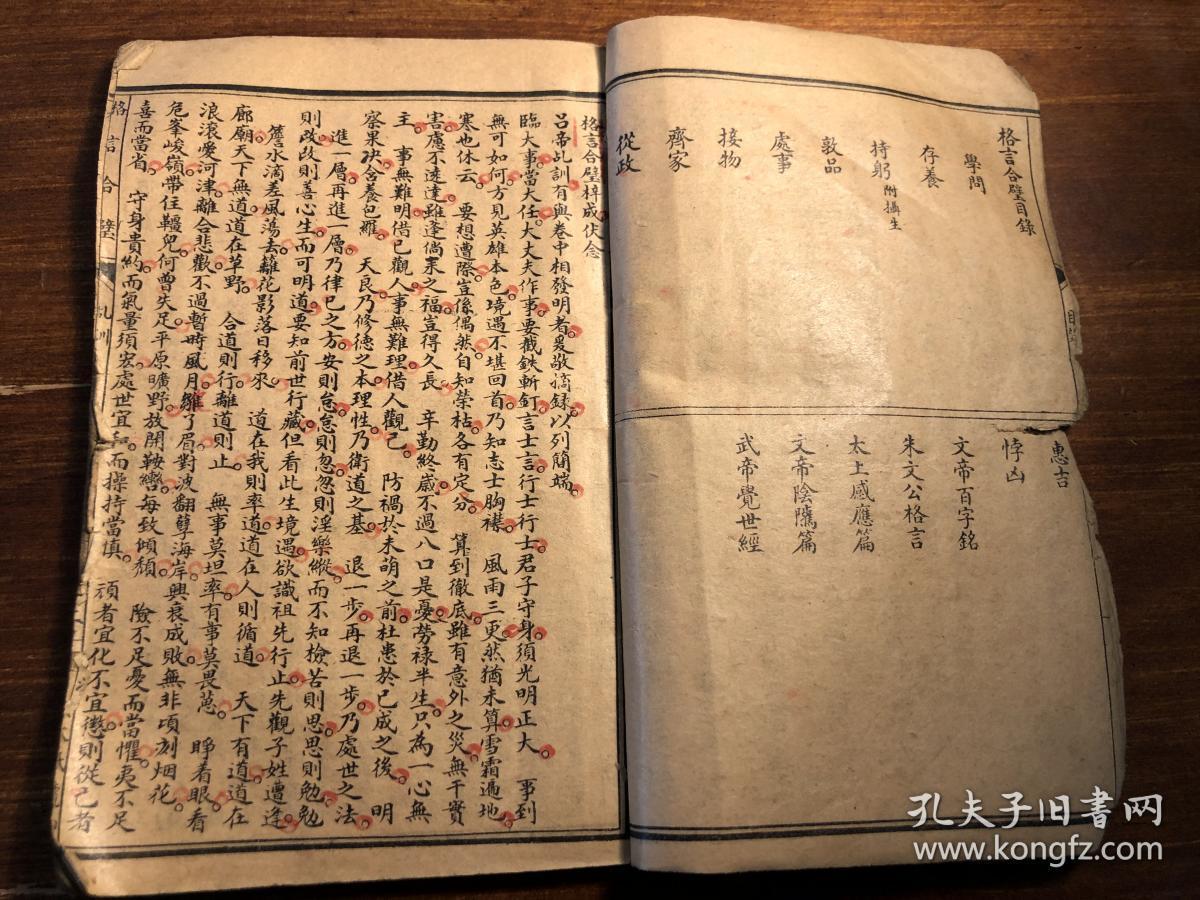 格言合璧目錄
學問
存養
持躬附攝生
敦品
處事
接物
齊家
從政
惠吉
悖凶
文帝百字銘
朱文公格言
太上感應篇
文帝陰隲篇
武帝覺世經
格言合璧梓成伏念
呂帝乩訓有與卷中相發明者爰敬摘錄以列簡端。
臨大事。當大任。大丈夫作事。要截鉄斬釘。言士言。行士行。士君子守身。須光明正大。 事到
無可如何。方見英雄本色。境遇不堪回首。乃知志士胸襟。 風雨三更。然猶未算。雪霜遍地。
寒也休云。 要想遭際。豈係偶然。自知榮枯。各有定分。 算到徹底。雖有意外之災。無干實
害。慮不遠達。雖逢倘來之福。豈得久長 辛勤終歲。不過八口是憂。勞祿半生。只為一心無
主。 事無難明。借己觀人。事無難理。借人觀己。 防禍於未萌之前。杜患於已成之後。 明
察果决。含養包羅 天良乃修德之本。理性乃衛道之基 退一步。再退一步。乃處世之法
進一層。再進一層。乃律己之方。安則怠。怠則忽。忽則淫樂縱而不知檢。苦則思。思則勉。勉
則改。改則善心生而可明道。要知前世行藏。但看此生境遇。欲識祖先行止。先觀子姓遭逢。
簷水滴差風蕩去。籬花影落日移來。 道在我則率道。道在人則循道。 天下有道。道在
廊廟。天下無道。道在草野。 合道則行。離道則止。 無事莫坦率。有事莫畏葸。 睜着眼。看
浪滾愛河津。離合悲歡。不過暫時風月。皺了眉。對波翻孽海岸。興衰成敗。無非頃刻烟花。
危峯峻嶺。帶住韁兒。何曾失足。平原曠野。放開鞍轡。每致傾頹。 險不足憂而當懼。夷不足
喜而當省。 守身貴約。而氣量須宏。處世宜和。而操持當慎。 頑者宜化不宜懲。則從己者
格言合璧
乩訓
孔夫子旧书网
www.kongfz.com